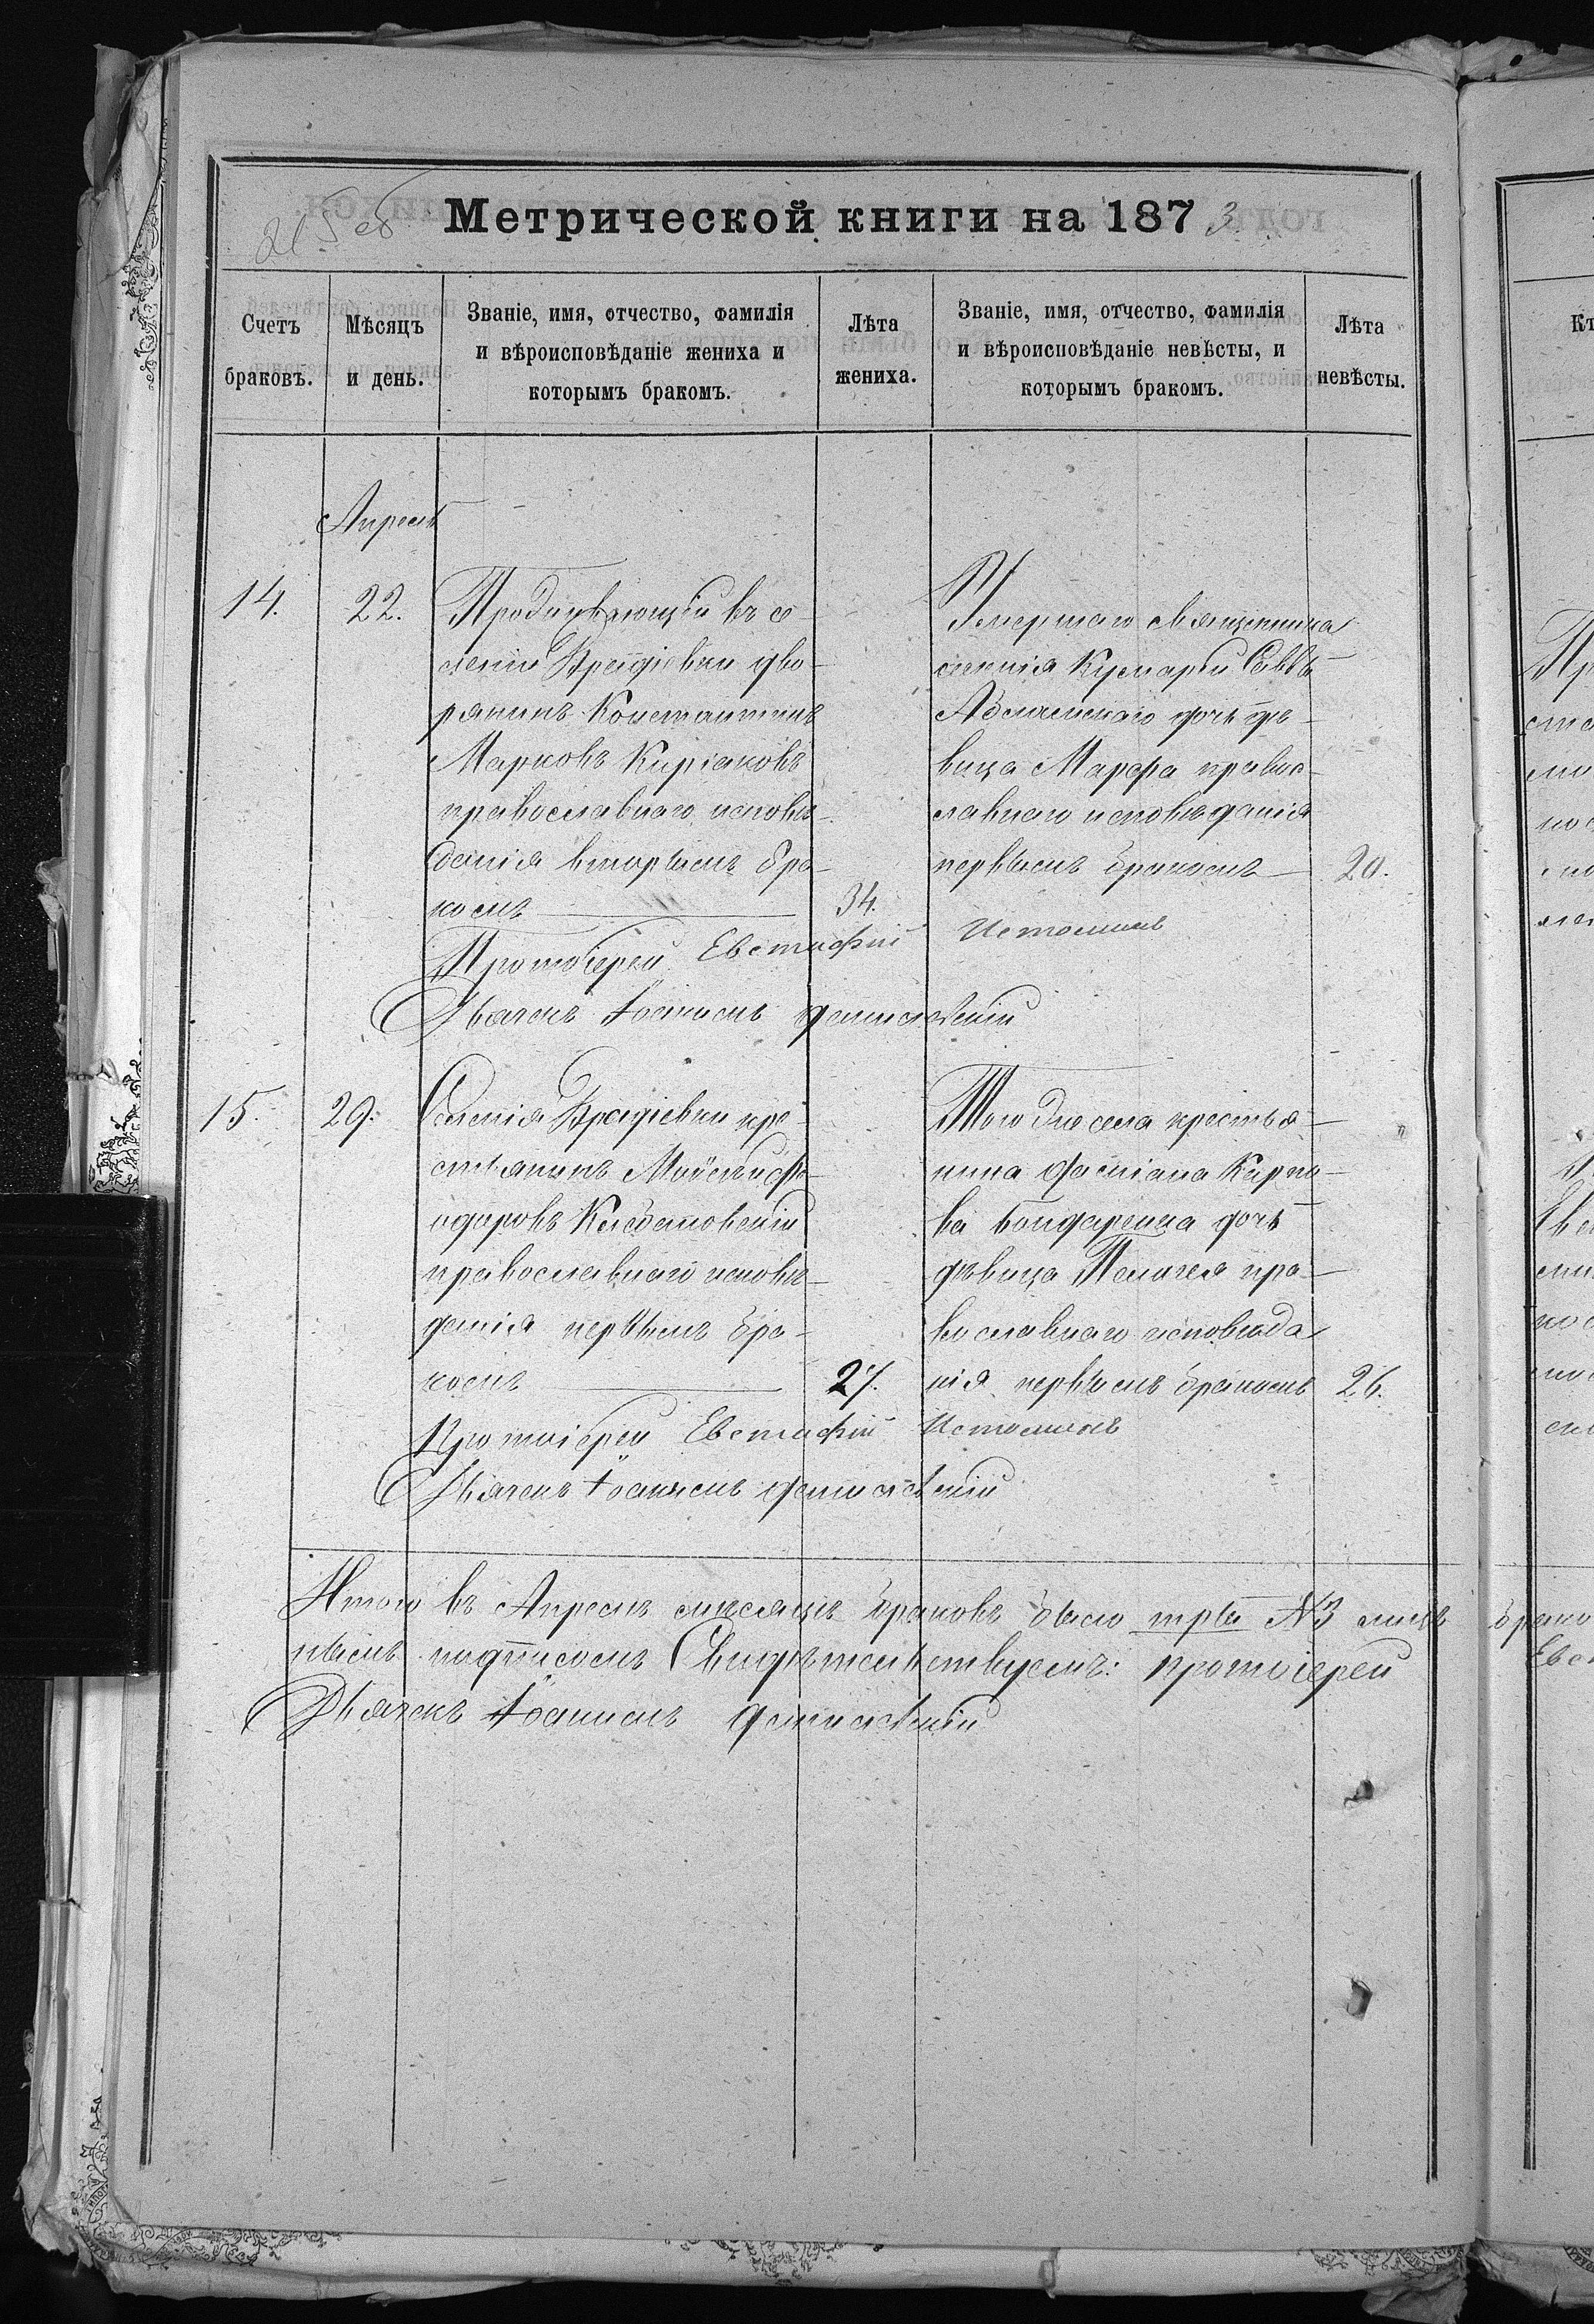 Метрической книги на 1873
Счетъ браковъ.
Мѣсяцъ и день.
Званіе, имя, отчество, фамилія
и вѣроисповѣданіе жениха и
которымъ бракомъ.
Лѣта жениха.
Званіе, имя, отчество, фамилія
и вѣроисповѣданіе невѣсты, и
которымъ бракомъ.
Лѣта невѣсты.
Апрель
14.
22.
въ се-
леніи Врадіевки дво-
рянинъ Константинъ
Марковъ Киріаковъ
православнаго исповѣ-
данія вторымъ бра-
комъ
34.
Умершаго священника
селенія Кумарей Саввы
дочь дѣ-
вица Марфа правос-
лавнаго исповѣданія
первымъ бракомъ
20.
Протоіерей Евстафій Истоминъ
Дьячекъ Іоанъ
15.
29.
Селенія Врадіевки кре-
стьянинъ Моисей Фе-
одоровъ
православнаго исповѣ-
данія первымъ бра-
комъ
27.
Того же села крестья-
нина Касьяна Карпо-
ва Бондаренка дочь
дѣвица Пелагея пра-
вославнаго исповѣда
нія первымъ бракомъ
26.
Протоіерей Евстафій Истоминъ
Дьячекъ Іоанъ
Итого въ Апрелѣ мѣсяцѣ браковъ было три №3
подписомъ Свидѣтельствуемъ: Протоіерей
Дьячекъ Іоанъ